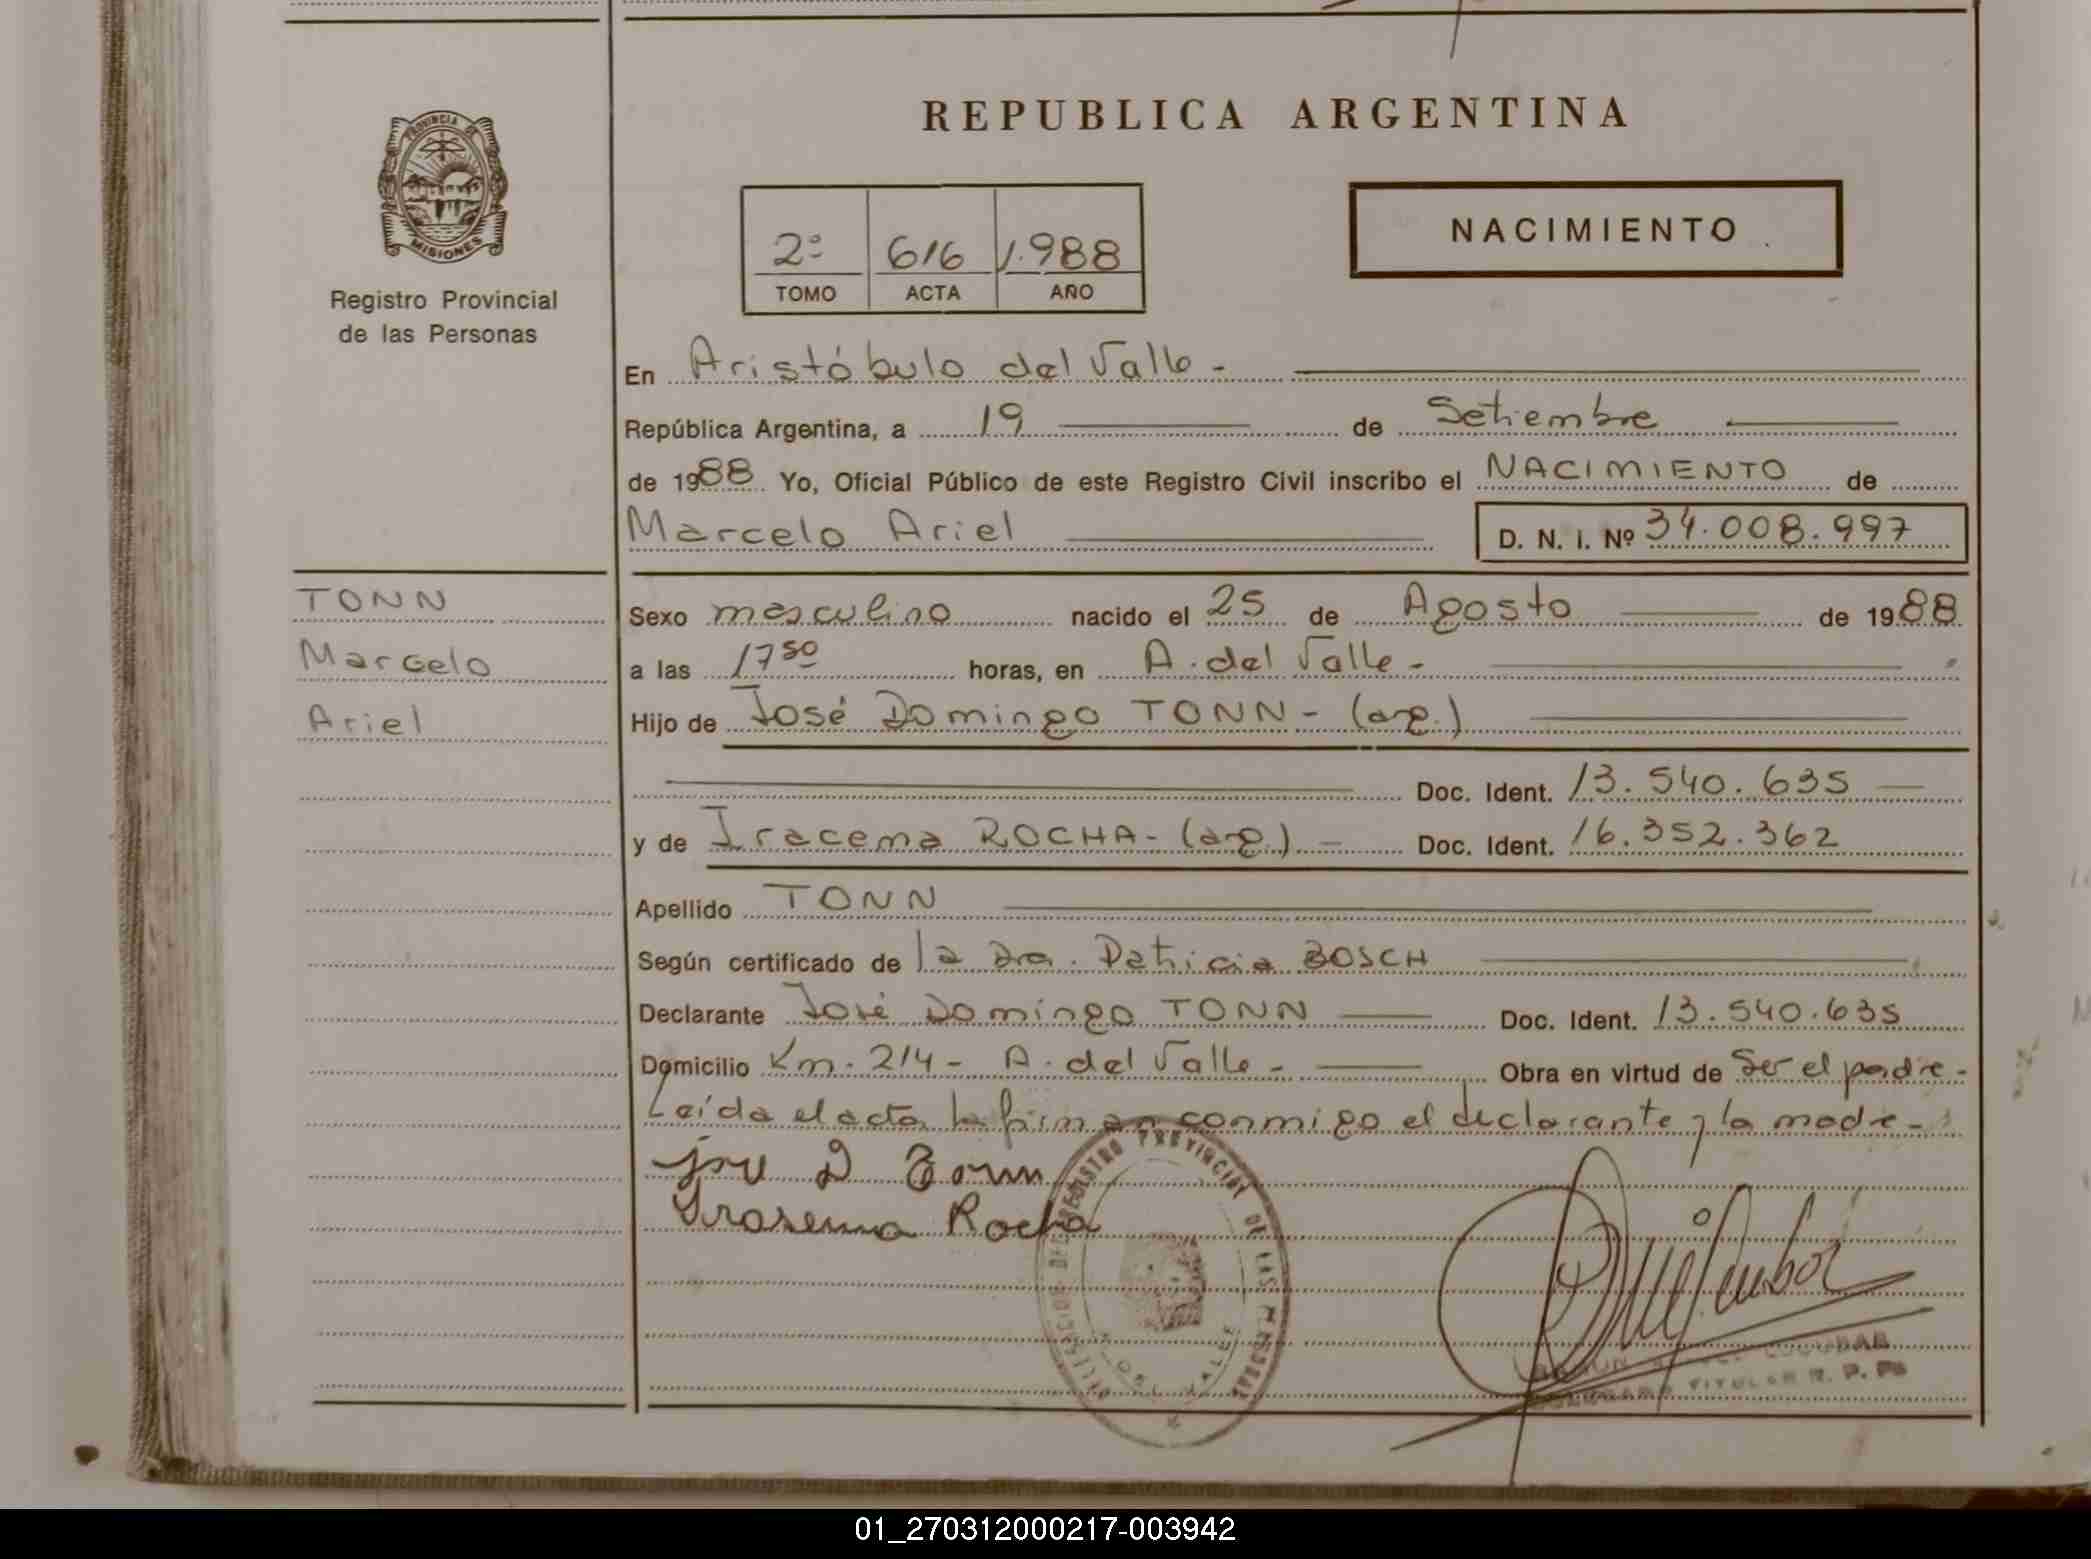 REPUBLICA ARGENTINA
PROVINCIA DE
MISIONES
Registro Provincial
de las Personas
2º 616 1.988
TOMO ACTA AÑO
NACIMIENTO
En Aristóbulo del Valle -
República Argentina, a 19 de Setiembre
de 1988 Yo, Oficial Público de este Registro Civil inscribo el NACIMIENTO de
Marcelo Ariel D. N. I. Nº 34.008.997
TONN
Marcelo
Ariel
Sexo masculino nacido el 25 de Agosto de 1988
a las 17 50 horas, en A. del Valle -
Hijo de José Domingo TONN - (arg.)
Doc. Ident. 13.540.635
y de Iracema ROCHA - (arg.) - Doc. Ident. 16.352.362
Apellido TONN
Según certificado de la Dra. Patricia BOSCH
Declarante José Domingo TONN Doc. Ident. 13.540.635
Domicilio Km. 214 - A. del Valle - Obra en virtud de Ser el padre -
Leída el acta la firman conmigo el declarante y la madre -
José D Tonn
Irasema Rocha
REGISTRO PROVINCIAL DE LAS PERSONAS
VALLE
TITULAR R. P. Ps
01_270312000217-003942